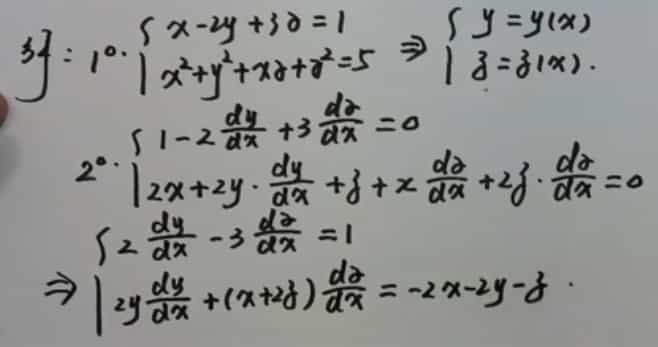 解: 1°. { x-2y+3z=1 ⇒ { y=y(x)
x²+y²+xz+z²=5 z=z(x).
2°. { 1-2 dy/dx +3 dz/dx =0
2x+2y· dy/dx +z+x dz/dx +2z· dz/dx =0
⇒ { 2 dy/dx -3 dz/dx =1
2y dy/dx +(x+2z) dz/dx = -2x-2y-z .